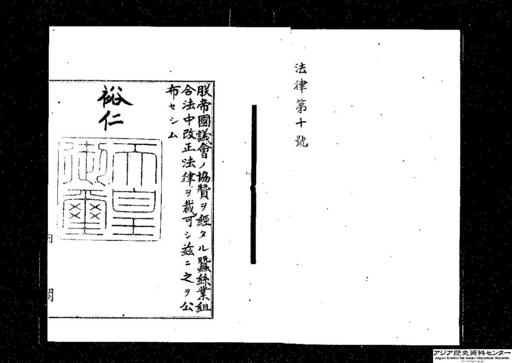 法律第十號
朕帝國議會ノ協贊ヲ經タル蠶絲業組
合法中改正法律ヲ裁可シ茲ニ之ヲ公
布セシム
裕仁
天皇
御璽
アジア歴史資料センター
Japan Center for Asian Historical Records